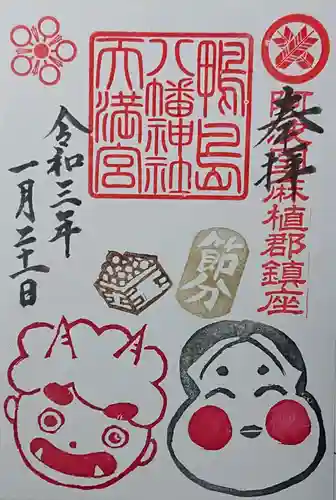 奉拝
阿波國麻植郡鎮座
鴨島
八幡神社
天満宮
令和三年
一月二十一日
節分